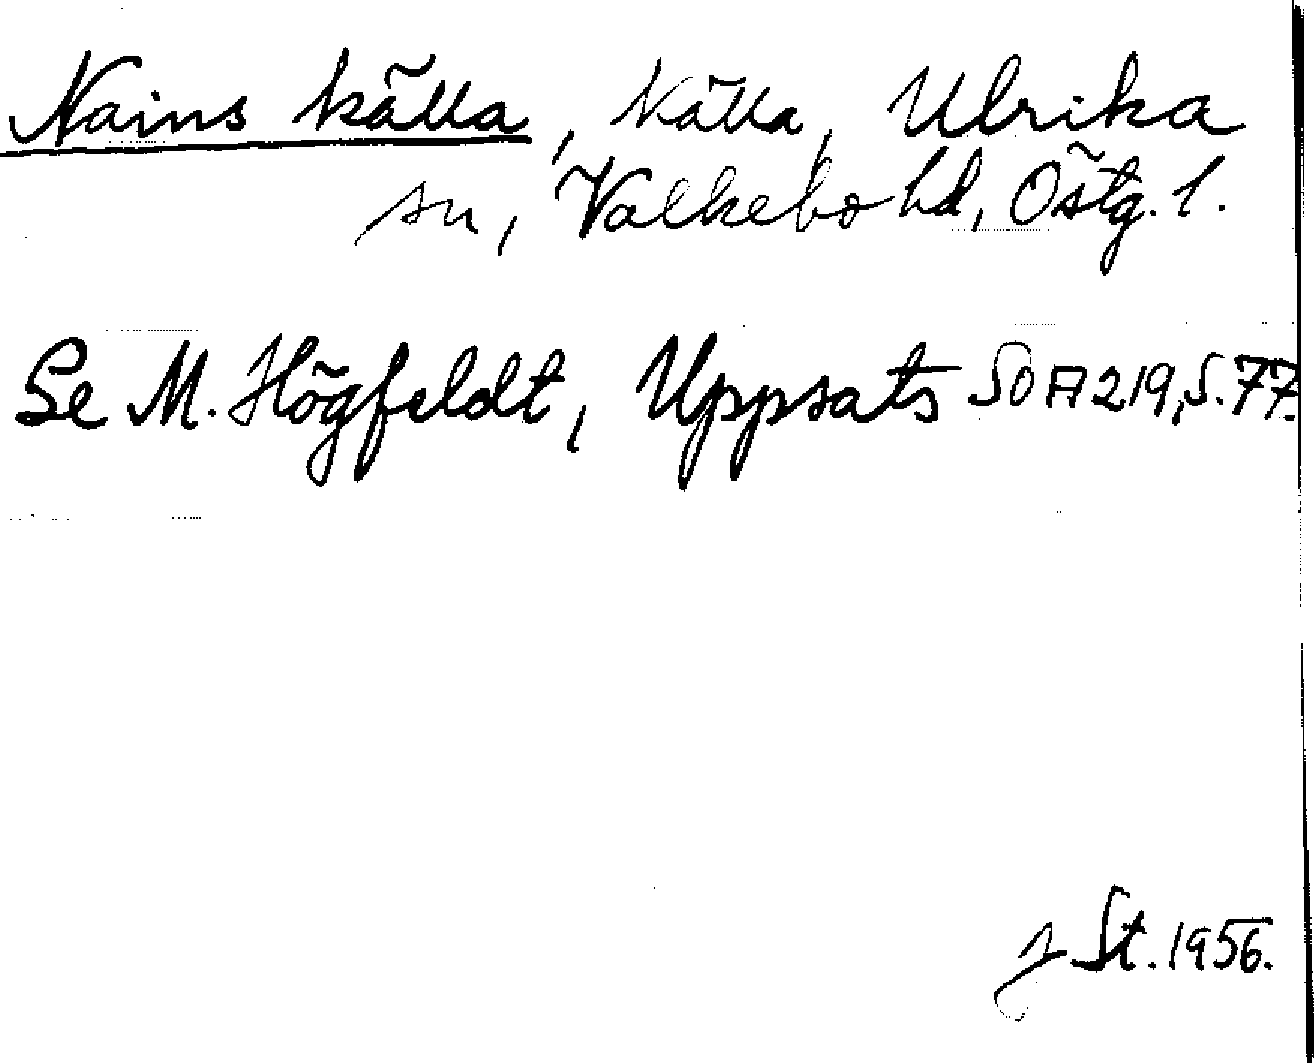 Nains källa, källa, Ulrika
sn, Valkebo hd, Östg. l.
Se M. Högfeldt, Uppsats SOA 219, S. 77.
J St. 1956.